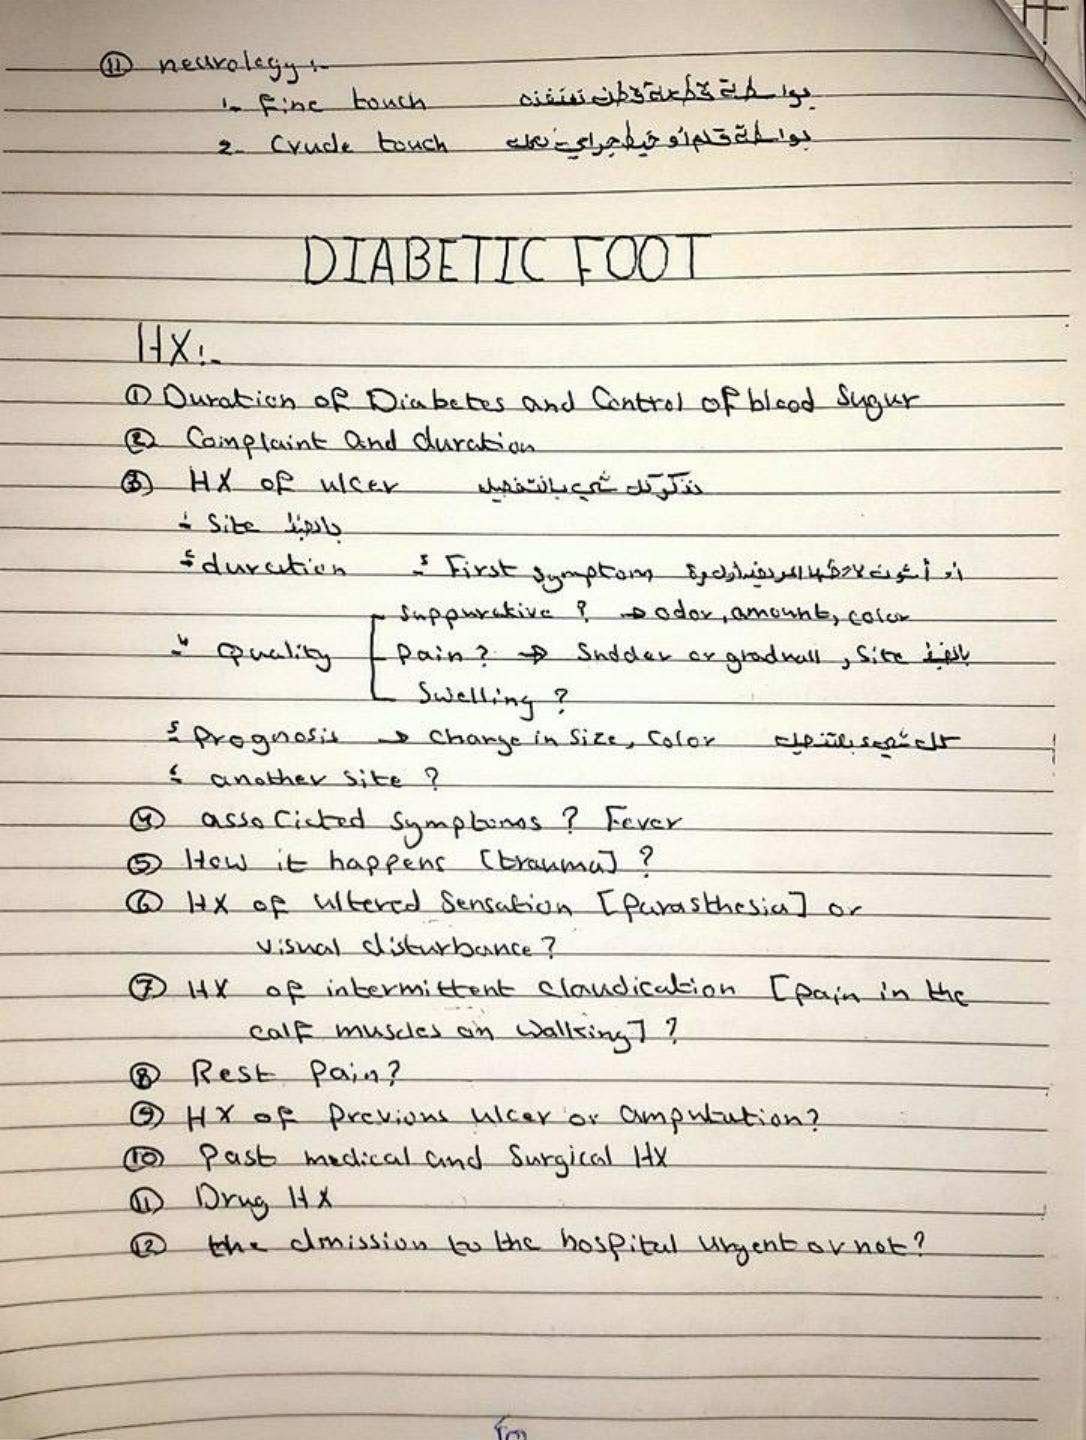 ⑪ neurology :-
1- Fine touch بواسطة قطعة قطن
2- Crude touch بواسطة قلم أو خيط جراحي
DIABETIC FOOT
HX:-
① Duration of Diabetes and Control of blood Sugur
② Complaint and duration
③ HX of ulcer نذكر كل شي بالتفصيل
١- Site بالضبط
٢- duration
٤- First symptom
٣- Quality
Suppurative ? → odor, amount, color
Pain ? → Sudder or graduall, Site بالضبط
Swelling ?
٤- Prognosis → Change in Size, Color كل شيء بالتفصيل
another Site ?
④ associcted Symptoms ? Fever
⑤ How it happens [trauma] ?
⑥ HX of altered Sensation [parasthesia] or
visual disturbance ?
⑦ HX of intermittent claudication [pain in the
calf muscles on walking] ?
⑧ Rest Pain?
⑨ HX of Previous ulcer or amputation?
⑩ Past medical and Surgical HX
⑪ Drug HX
⑫ the dmission to the hospital urgent or not?